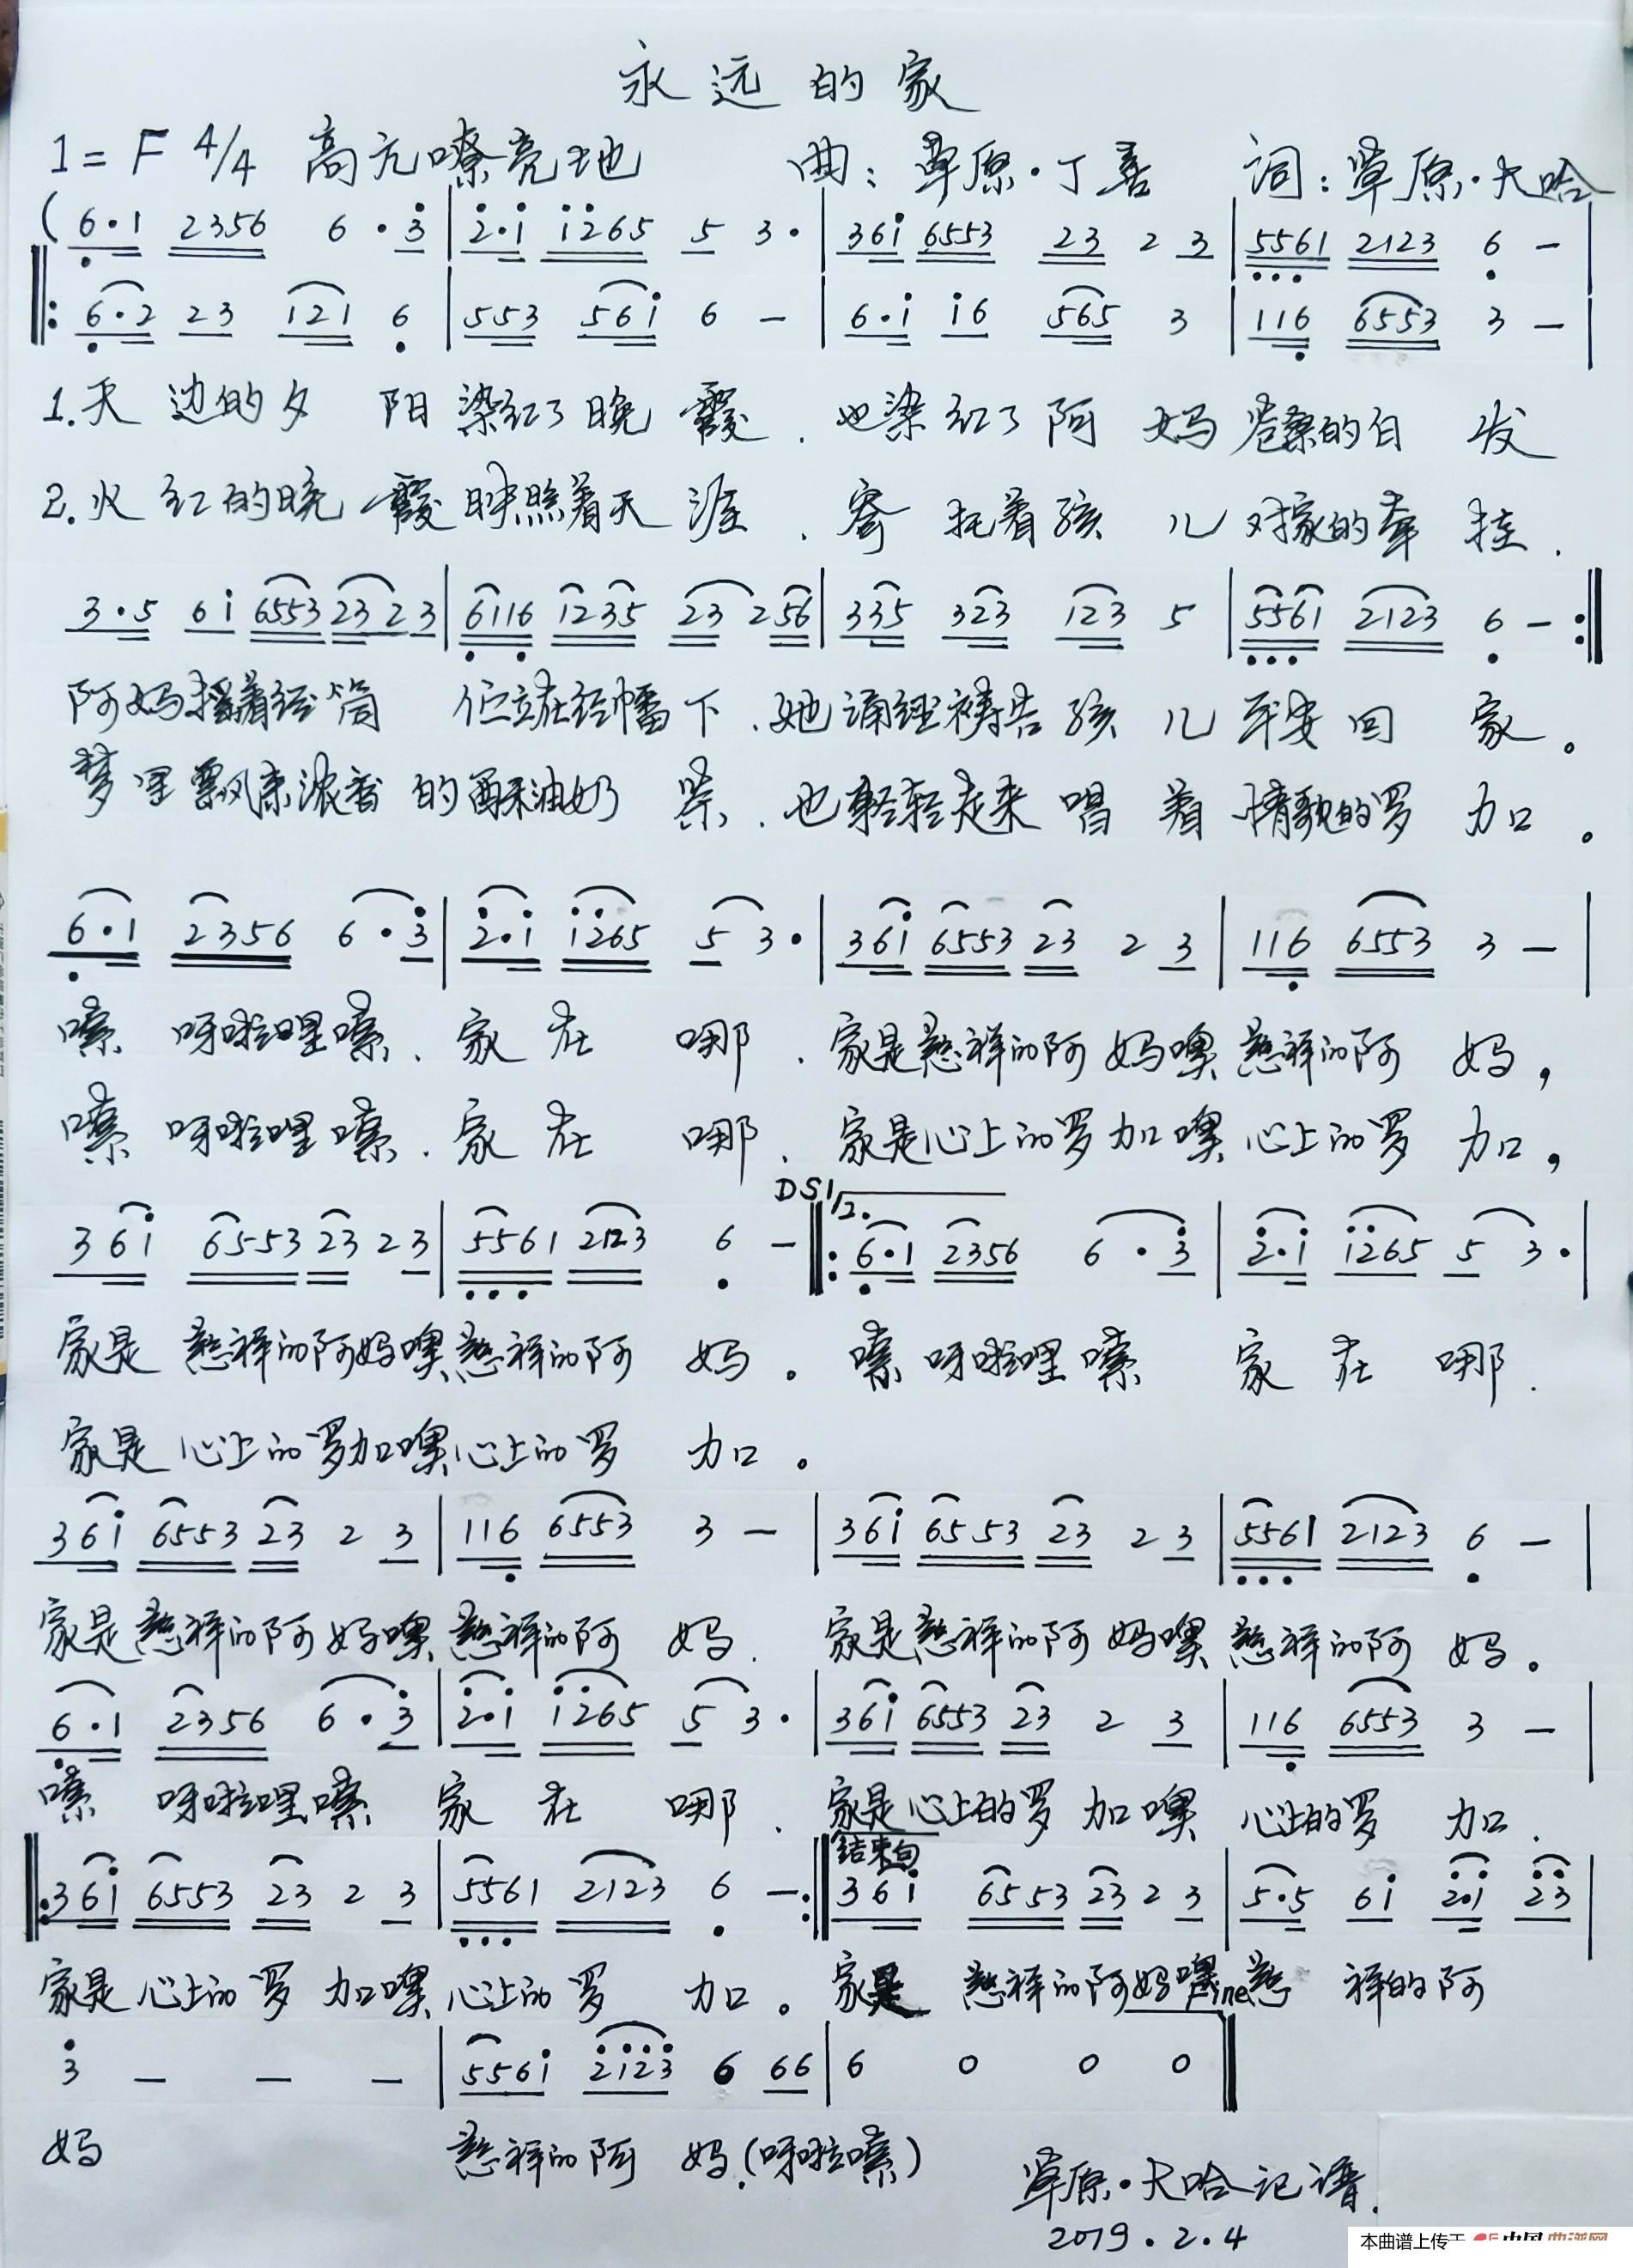 永远的家
1=F 4/4 高亢嘹亮地 曲：草原·丁喜 词：草原·大哈
(6·1 2356 6·3 | 2·1 1265 5 3· | 361 6553 23 2 3 | 5561 2123 6 — |
6·2 23 121 6 | 553 561 6 — | 6·1 16 565 3 | 116 6553 3 — |
1.天边的夕阳染红了晚霞、也染红了阿妈苍桑的白发
2.火红的晚霞映照着天涯、寄托着孩儿对家的牵挂、
3·5 61 6553 23 2 3 | 6116 1235 23 2 56 | 335 323 123 5 | 5561 2123 6 — :||
阿妈摇着经筒 伫立在经幡下、她诵经祷告孩儿平安回家。
梦里飘来浓香的酥油奶茶、也轻轻走来唱着情歌的罗加。
6·1 2356 6·3 | 2·1 1265 5 3· | 361 6553 23 2 3 | 116 6553 3 — |
嗦呀啦哩嗦、家在哪、家是慈祥的阿妈噢慈祥的阿妈，
嗦呀啦哩嗦、家在哪、家是心上的罗加噢心上的罗加，
DS1 2.
361 6553 23 2 3 | 5561 2123 6 — ||: 6·1 2356 6·3 | 2·1 1265 5 3· |
家是慈祥的阿妈噢慈祥的阿妈。嗦呀啦哩嗦 家在哪、
家是心上的罗加噢心上的罗加。
361 6553 23 2 3 | 116 6553 3 — | 361 6553 23 2 3 | 5561 2123 6 — |
家是慈祥的阿妈噢慈祥的阿妈、家是慈祥的阿妈噢慈祥的阿妈。
6·1 2356 6·3 | 2·1 1265 5 3· | 361 6553 23 2 3 | 116 6553 3 — |
嗦呀啦哩嗦 家在哪、家是心上的罗加噢心上的罗加、
结束句
||: 361 6553 23 2 3 | 5561 2123 6 — :|| 361 6553 23 2 3 | 5·5 61 2·1 23 |
家是心上的罗加噢心上的罗加。家是慈祥的阿妈噢慈祥的阿
Fine
3 — — — | 5561 2123 6 66 | 6 0 0 0 ||
妈 慈祥的阿妈、(呀啦嗦)
草原·大哈记谱、
2019.2.4
本曲谱上传于